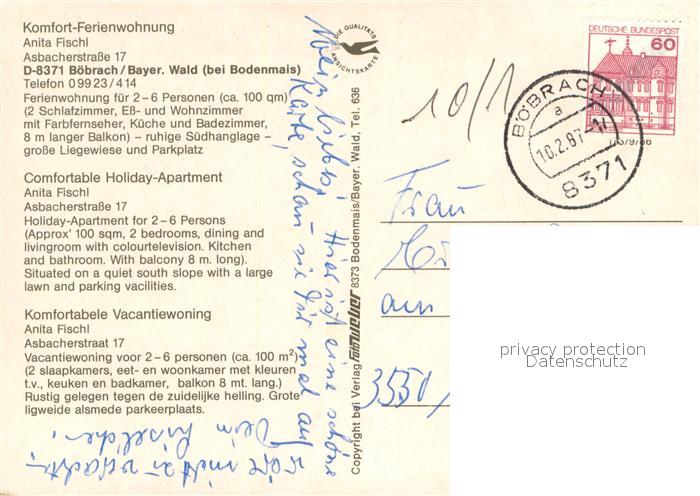 Komfort-Ferienwohnung
Anita Fischl
Asbacherstraße 17
D-8371 Böbrach/Bayer. Wald (bei Bodenmais)
Telefon 0 99 23 / 4 14
Ferienwohnung für 2–6 Personen (ca. 100 qm)
(2 Schlafzimmer, Eß- und Wohnzimmer
mit Farbfernseher, Küche und Badezimmer,
8 m langer Balkon) – ruhige Südhanglage –
große Liegewiese und Parkplatz
Comfortable Holiday-Apartment
Anita Fischl
Asbacherstraße 17
Holiday-Apartment for 2–6 Persons
(Approx' 100 sqm, 2 bedrooms, dining and
livingroom with colourtelevision. Kitchen
and bathroom. With balcony 8 m. long).
Situated on a quiet south slope with a large
lawn and parking vacilities.
Komfortabele Vacantiewoning
Anita Fischl
Asbacherstraat 17
Vacantiewoning voor 2–6 personen (ca. 100 m²)
(2 slaapkamers, eet- en woonkamer met kleuren
t.v., keuken en badkamer, balkon 8 mt. lang.)
Rustig gelegen tegen de zuidelijke helling. Grote
ligweide alsmede parkeerplaats.
Hier ist eine schöne
Karte, schau sie Dir mal an
Dein
DIE QUALITÄTS
ANSICHTSKARTE
Copyright bei Verlag foto weber 8373 Bodenmais/Bayer. Wald, Tel.: 636
10/1
DEUTSCHE BUNDESPOST
60
BÖBRACH
a
10.2.87-11
8371
Frau
am
3550
privacy protection
Datenschutz